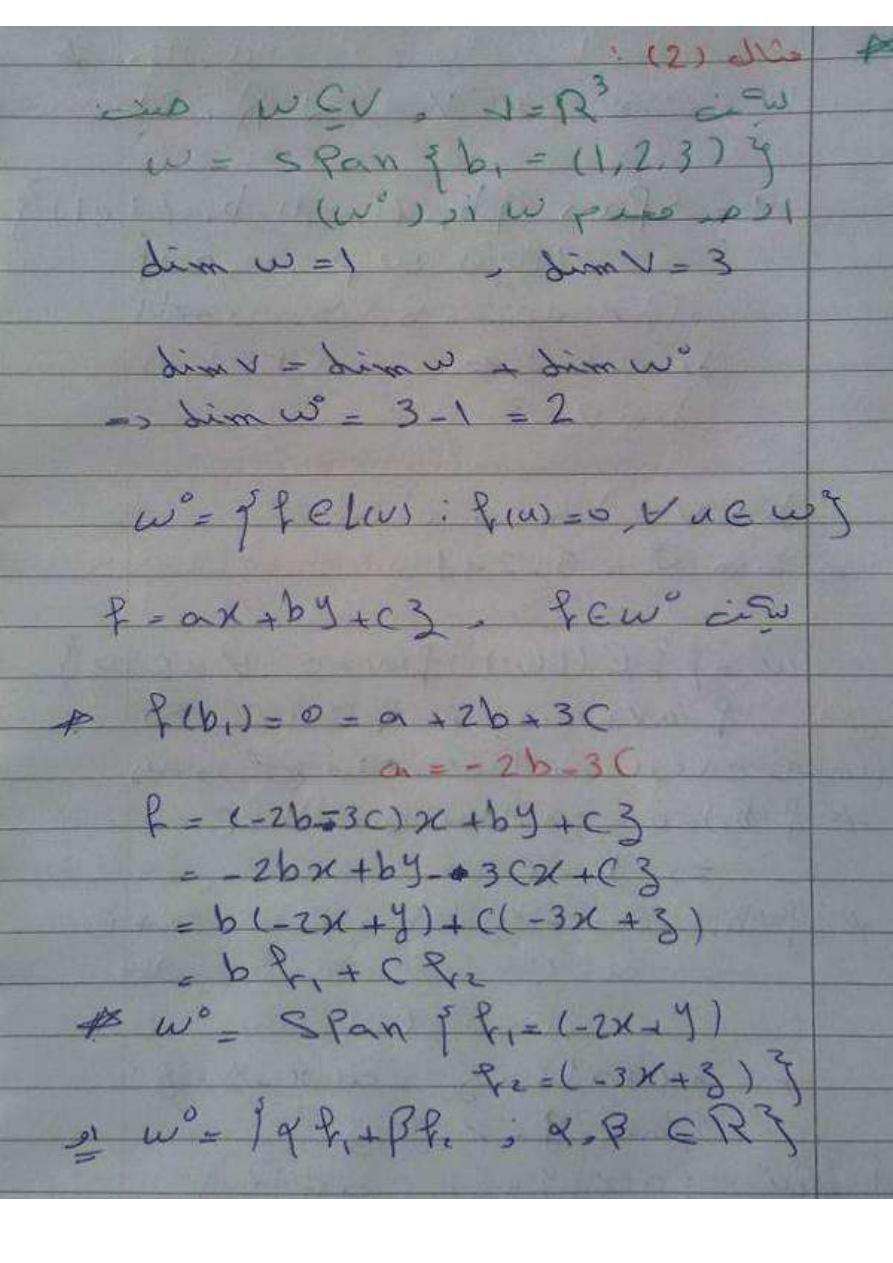 * مثال (2) :
ليكن V = R³ , W ⊆ V حيث
W = span { b₁ = (1,2,3) }
W أو (W°)
dim W = 1 , dim V = 3
dim V = dim W + dim W°
=> dim W° = 3 - 1 = 2
W° = { f ∈ L(V) : f(u) = 0, ∀ u ∈ W }
ليكن f ∈ W° , f = ax + by + cz
* f(b₁) = 0 = a + 2b + 3c
a = -2b - 3c
f = (-2b - 3c)x + by + cz
= -2bx + by - 3cx + cz
= b(-2x + y) + c(-3x + z)
= b f₁ + c f₂
* W° = span { f₁ = (-2x + y)
f₂ = (-3x + z) }
أو W° = { α f₁ + β f₂ ; α, β ∈ R }